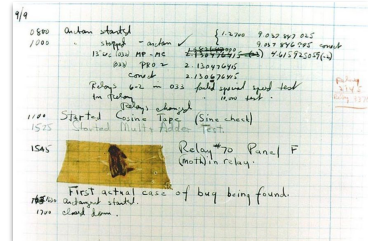 9/9
0800 antan started
1000 " stopped - antan ✓
{ 1.2700 9.037 847 025
9.037 846 995 correct
13"uc (032) MP-MC 4.615925059(-2)
(033) PRO 2 2.130476415
correct 2.130676415
Relays 6-2 in 033 failed special speed test
in relay " 10.000 test.
Relays changed
1100 Started Cosine Tape (Sine check)
1525 Started Multi Adder Test.
1545 Relay #70 Panel F
(moth) in relay.
First actual case of bug being found.
1630 antangent started.
1700 closed down.